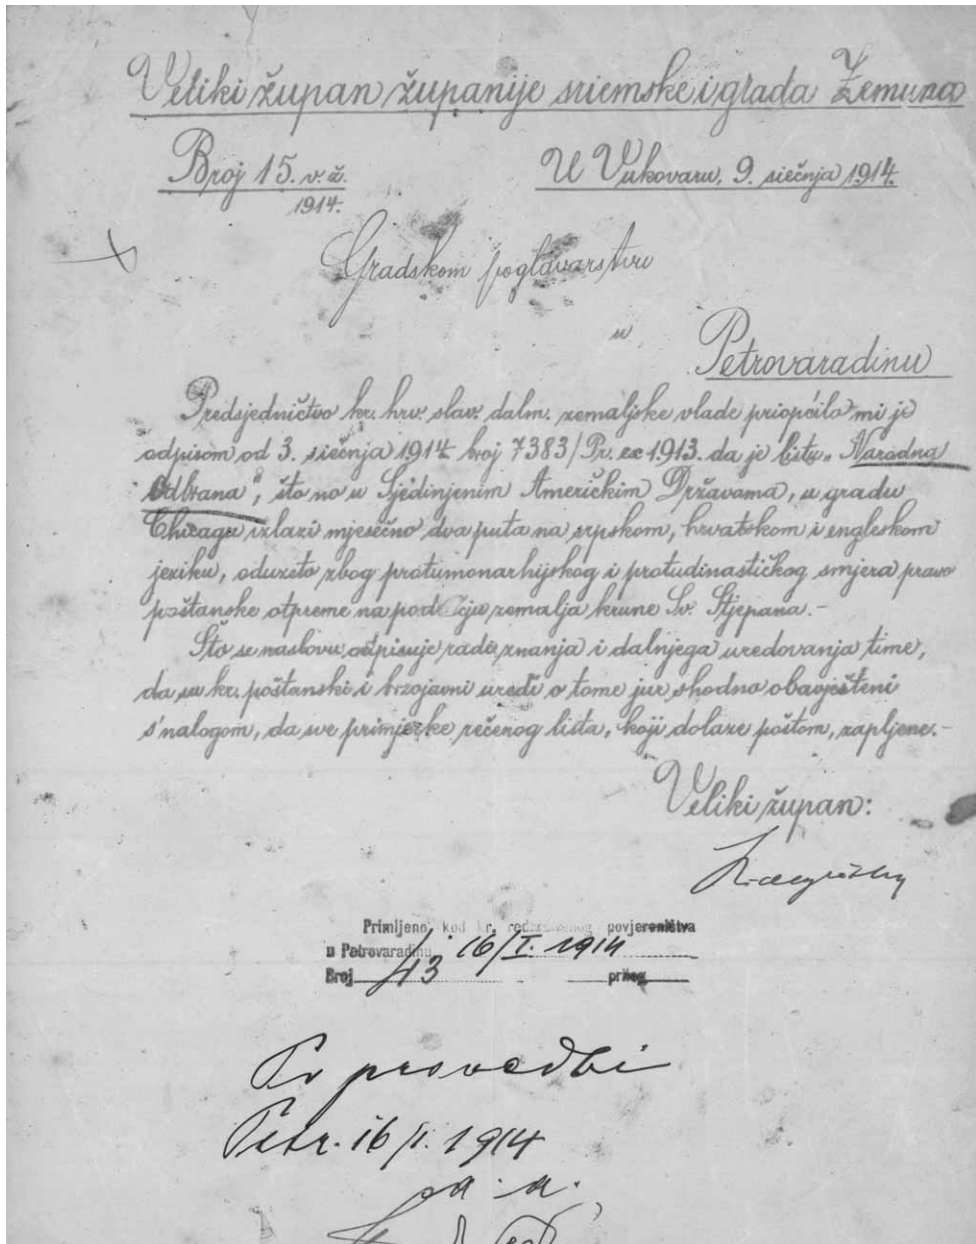 Veliki župan županije sriemske i grada Zemuna
Broj 15. v. ž.
1914.
U Vukovaru, 9. siečnja 1914.
Gradskom poglavarstvu
u
Petrovaradinu
Predsjedničtvo kr. hrv. slav. dalm. zemaljske vlade priopćilo mi je
odpisom od 3. siečnja 1914 broj 7383/Pr. ex 1913. da je listu „Narodna
Odbrana", što no u Sjedinjenim Američkim Državama, u gradu
Chicagu izlazi mjesečno dva puta na srpskom, hrvatskom i engleskom
jeziku, oduzeto zbog protumonarhijskog i protudinastičkog smjera pravo
poštanske otpreme na području zemalja krune Sv. Stjepana.-
Što se naslovu otpisuje radi znanja i daljnjega uredovanja time,
da su kr. poštanski i brzojavni uredi o tome jur shodno obavješteni
s'nalogom, da sve primjerke rečenog lista, koji dolaze poštom, zapljene.-
Veliki župan:
Primljeno kod kr. redarstvenog povjereništva
u Petrovaradinu 16/I. 1914
Broj 43 prilog
Po provedbi
Petr. 16/I. 1914
a. a.